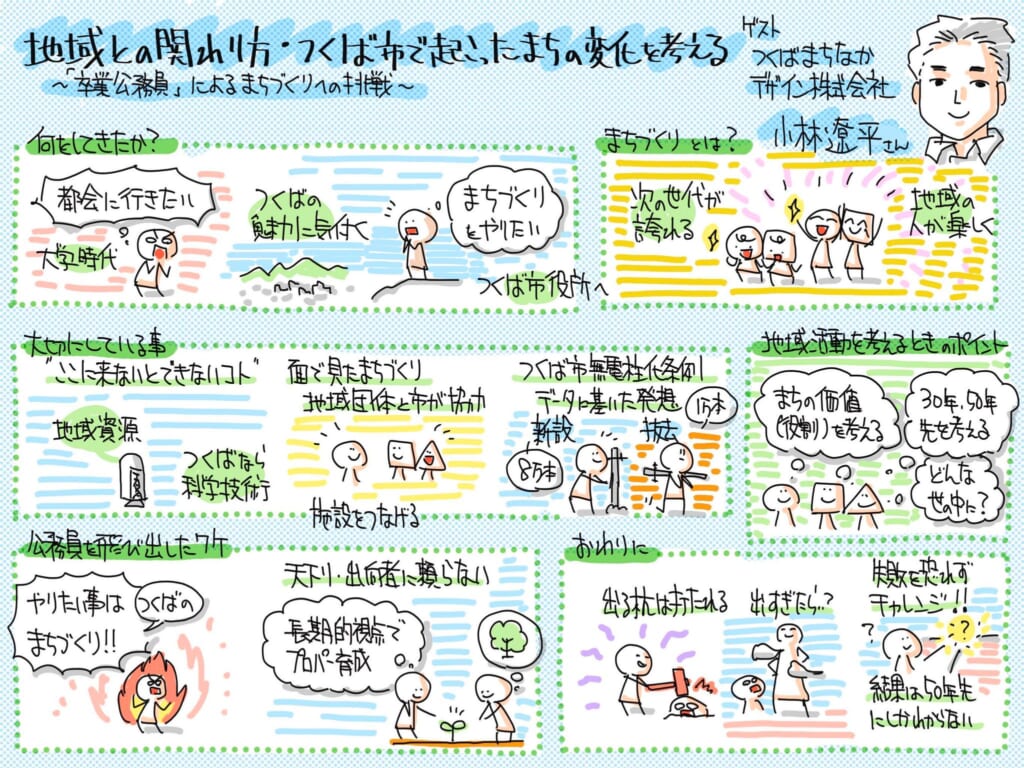 地域との関わり方・つくば市で起こったまちの変化を考える
～「卒業公務員」によるまちづくりへの挑戦～
ゲスト
つくばまちなか
デザイン株式会社
小林遼平さん
何をしてきたか?
都会に行きたい
大学時代
つくばの
魅力に気付く
まちづくり
をやりたい
つくば市役所へ
まちづくりとは?
次の世代が
誇れる
地域の
人が楽しく
大切にしている事
"ここに来ないとできないコト"
地域資源
つくばなら
科学技術
面で見たまちづくり
地域団体と市が協力
施設をつなげる
つくば市無電柱化条例
データに基いた発想
新設
8万本
抜去
1万本
地域活動を考えるときのポイント
まちの価値
(役割)を考える
30年、50年
先を考える
どんな
世の中に?
公務員を飛び出したワケ
やりたい事は
まちづくり!!
つくばの
天下り・出向者に頼らない
長期的視点で
プロパー育成
おわりに
出る杭は打たれる
出すぎたら…?
失敗を恐れず
チャレンジ!!
?
?
結果は50年先
にしかわからない